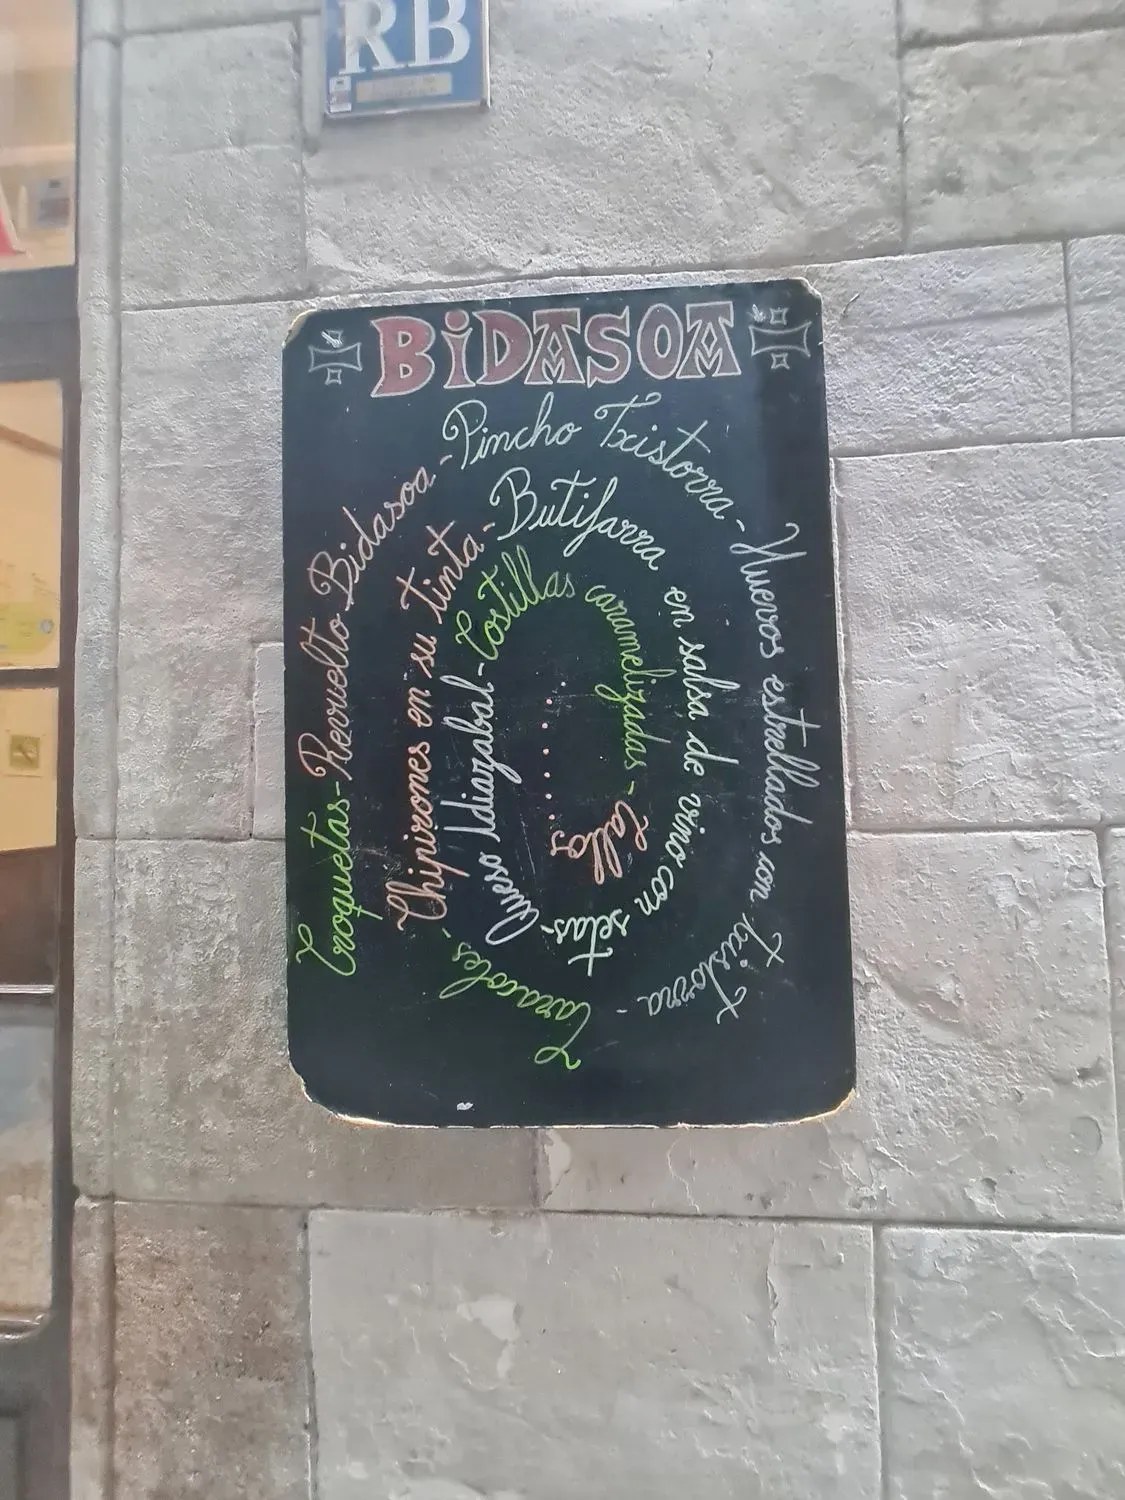 RB
BiDASOA
Croquetas - Revuelto Bidasoa - Pincho Txistorra - Huevos estrellados con txistorra - Caracoles - Chipirones en su tinta - Butifarra en salsa de vino con setas - Queso Idiazabal - Costillas caramelizadas - Callos ........